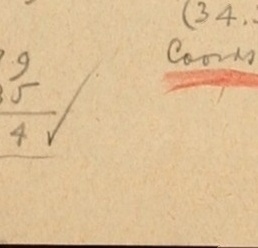 (34.
Coords
9
5
4 ✓